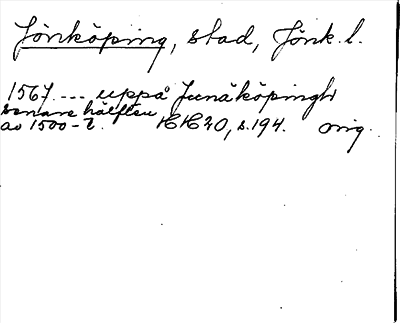 Jönköping, stad, Jönk. l.
1567 ... uppå Junäköpingh
senare hälften
av 1500-t. HH 20, s. 194. orig.